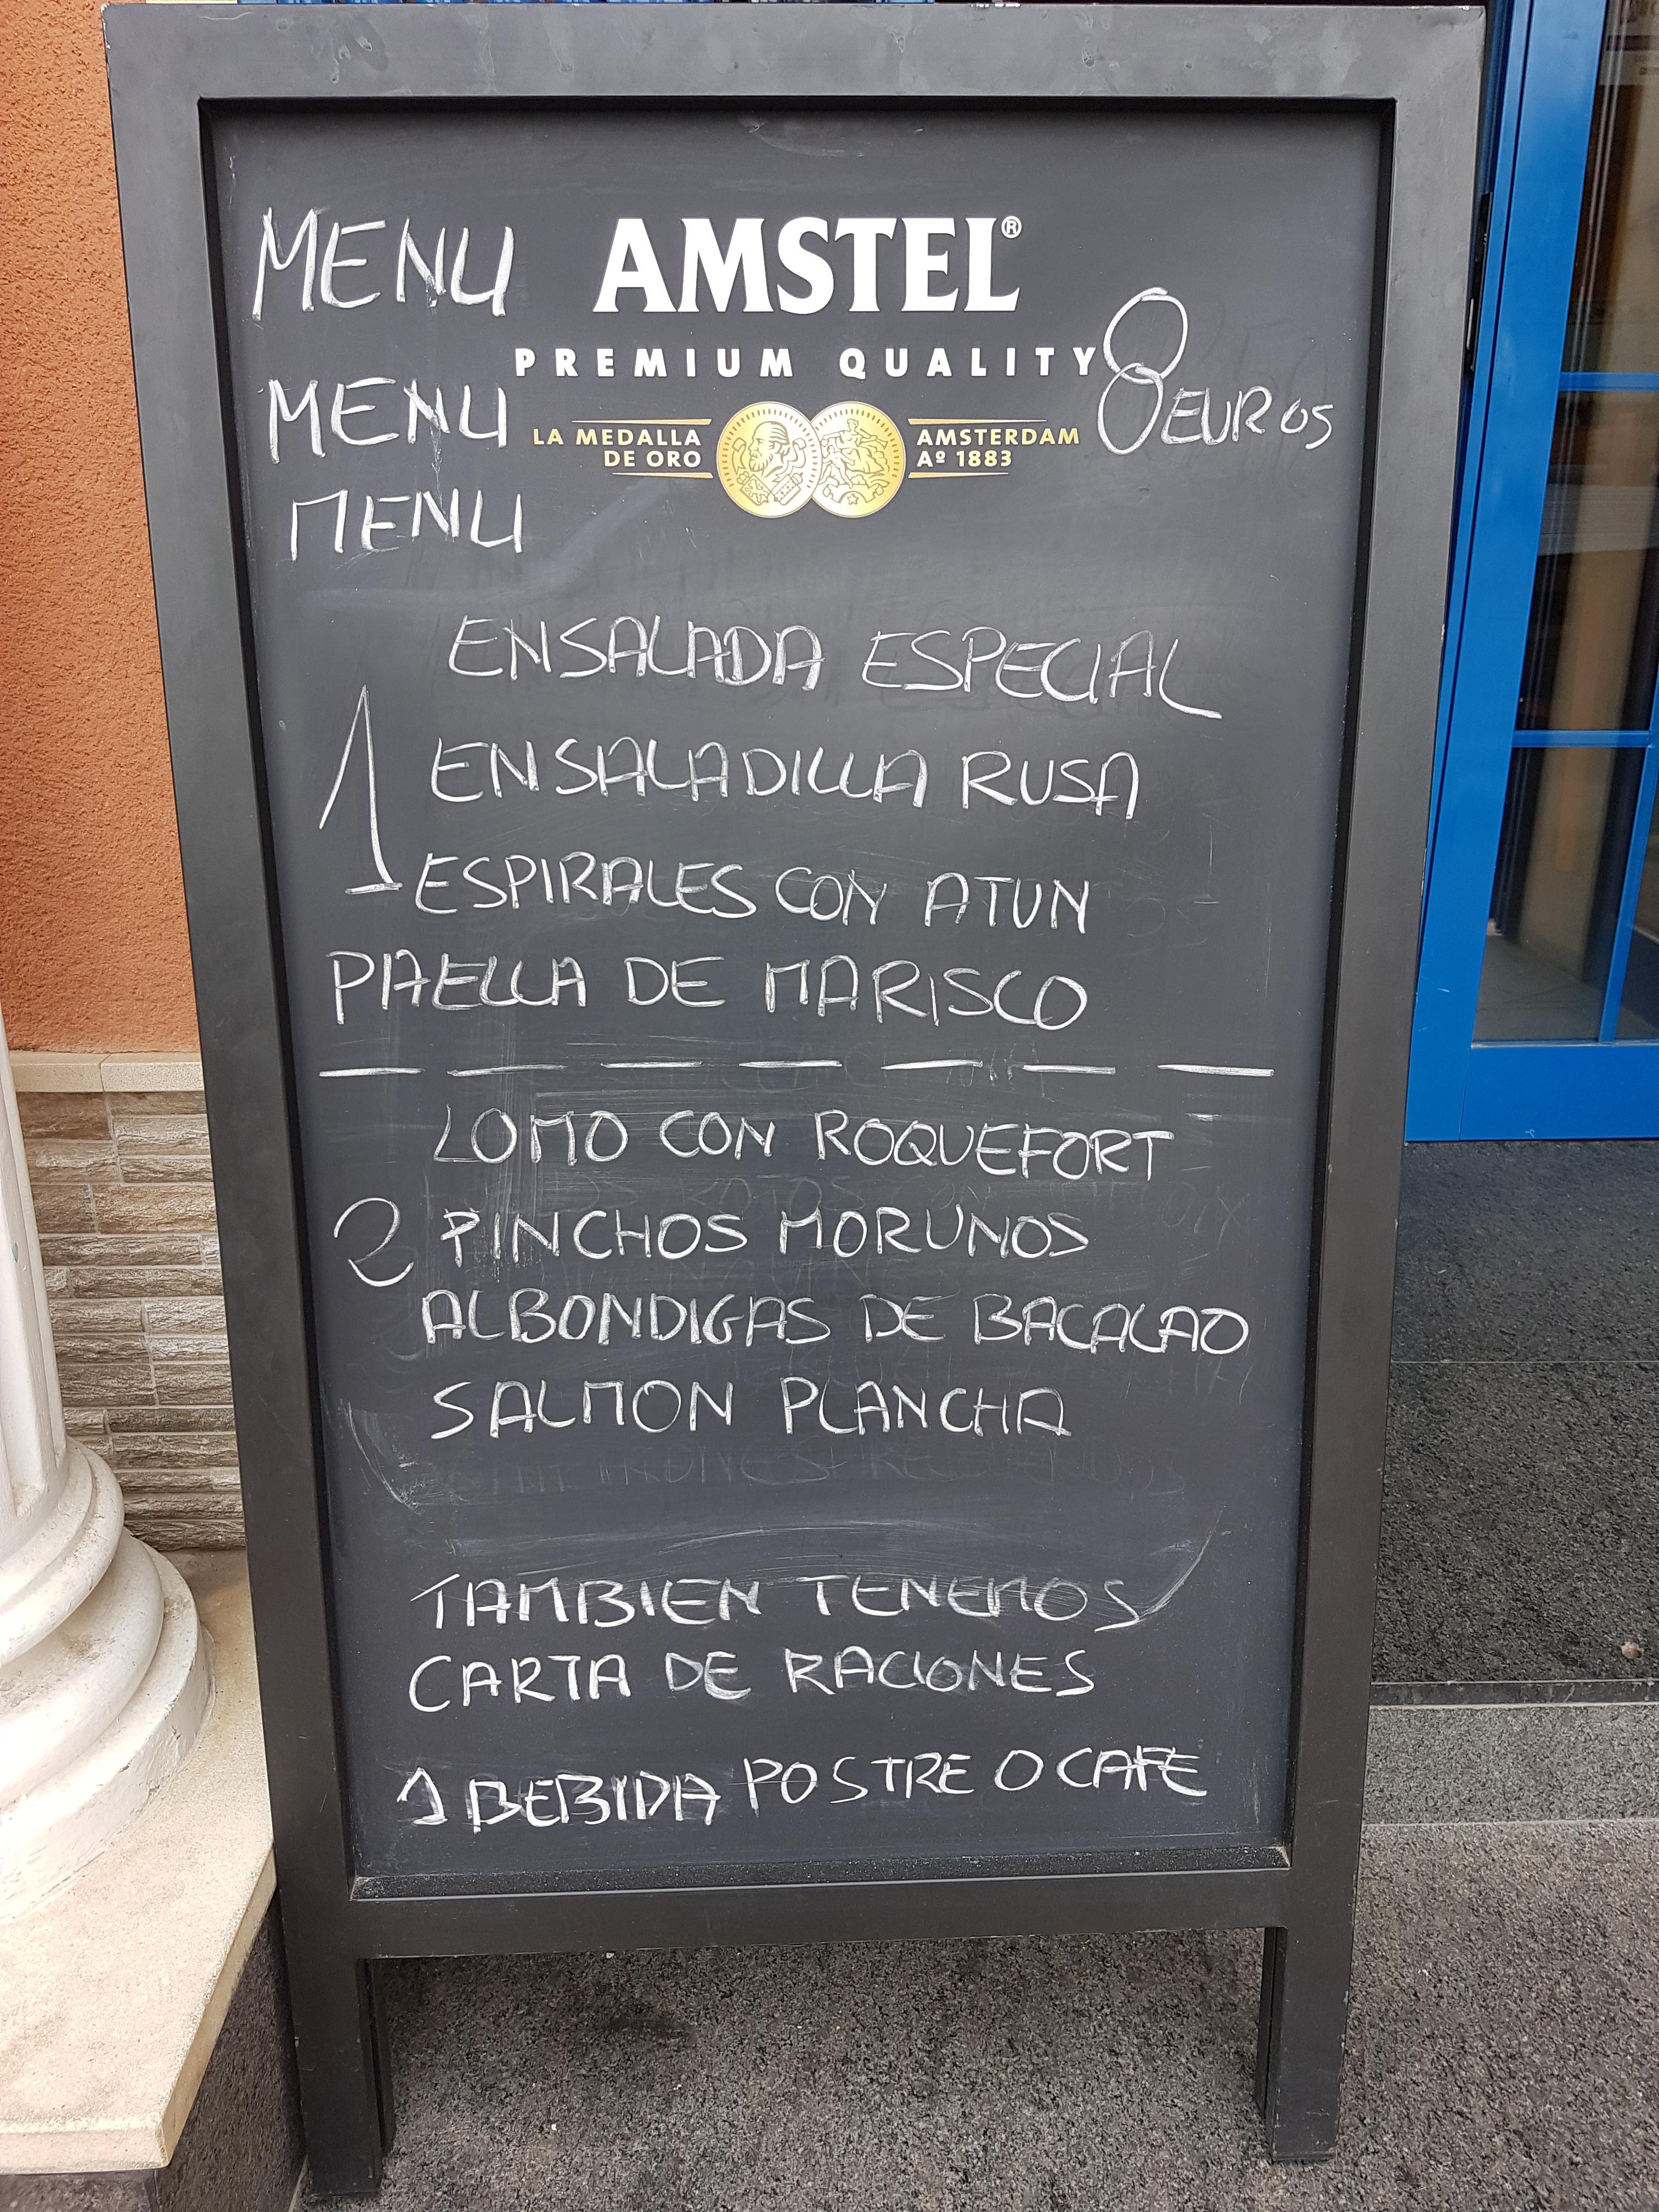 MENU AMSTEL®
PREMIUM QUALITY
MENU 8 EUROS
LA MEDALLA DE ORO
AMSTERDAM Aº 1883
MENU
ENSALADA ESPECIAL
1 ENSALADILLA RUSA
ESPIRALES CON ATUN
PAELLA DE MARISCO
LOMO CON ROQUEFORT
2 PINCHOS MORUNOS
ALBONDIGAS DE BACALAO
SALMON PLANCHA
TAMBIEN TENEMOS
CARTA DE RACIONES
1 BEBIDA POSTRE O CAFE